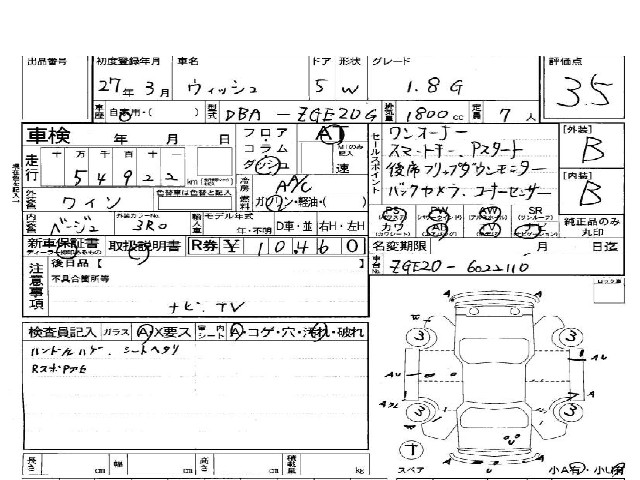 出品番号 初度登録年月 車名 ドア 形状 グレード 評価点
27年 3月 ウィッシュ 5 W 1.8G 3.5
車歴 自家用・( ) 型式 DBA-ZGE20G 排気量 1800cc 定員 7人
車検 年 月 日 フロア AT
コラム
ダッシュ 速
走行 十万 万 千 百 十 一
54922 km
冷房 A/C
外装色 ワイン 色替車は色替と記入 燃料 ガソリン・軽油・( )
内装色 ベージュ 外装カラーNo. 3R0 輸入車 モデル年式 年・不明 D車・並 右H・左H
セールスポイント ワンオーナー
スマートキー、Pスタート
後席フリップダウンモニター
バックカメラ、コーナーセンサー
【外装】 B
【内装】 B
PS PW AW SR
カワ AB TV ナビ
純正品のみ丸印
新車保証書 取扱説明書 R券 ¥10460 名変期限 月 日迄
車台No. ZGE20-6022110
注意事項 後日品【 】
不具合箇所等
ナビ、TV
検査員記入 ガラス A・X要ス 室内シート A・コゲ・穴・汚れ・破れ
ハンドルハゲ、シートヘタリ
RスポPアセ
3 3
AU AU
A
3 3
T
スペア
長さ cm 幅 cm 高さ cm 積載量 kg 小A有・小U有